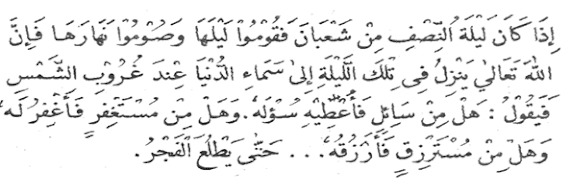 إِذَا كَانَ لَيْلَةُ النِّصْفِ مِنْ شَعْبَانَ فَقُومُوْا لَيْلَهَا وَصُومُوْا نَهَارَهَا فَإِنَّ
اللهَ تَعَالَىٰ يَنْزِلُ فِى تِلْكَ اللَّيْلَةِ إِلىٰ سَمَاءِ الدُّنْيَا عِنْدَ غُرُوْبِ الشَّمْسِ
فَيَقُوْلُ : هَلْ مِنْ سَائِلٍ فَأُعْطِيْهِ سُؤْلَهُ. وَهَلْ مِنْ مُسْتَغْفِرٍ فَأَغْفِرُ لَهُ،
وَهَلْ مِنْ مُسْتَرْزِقٍ فَأَرْزُقُهُ، ... حَتَّى يَطْلُعَ الْفَجْرُ.